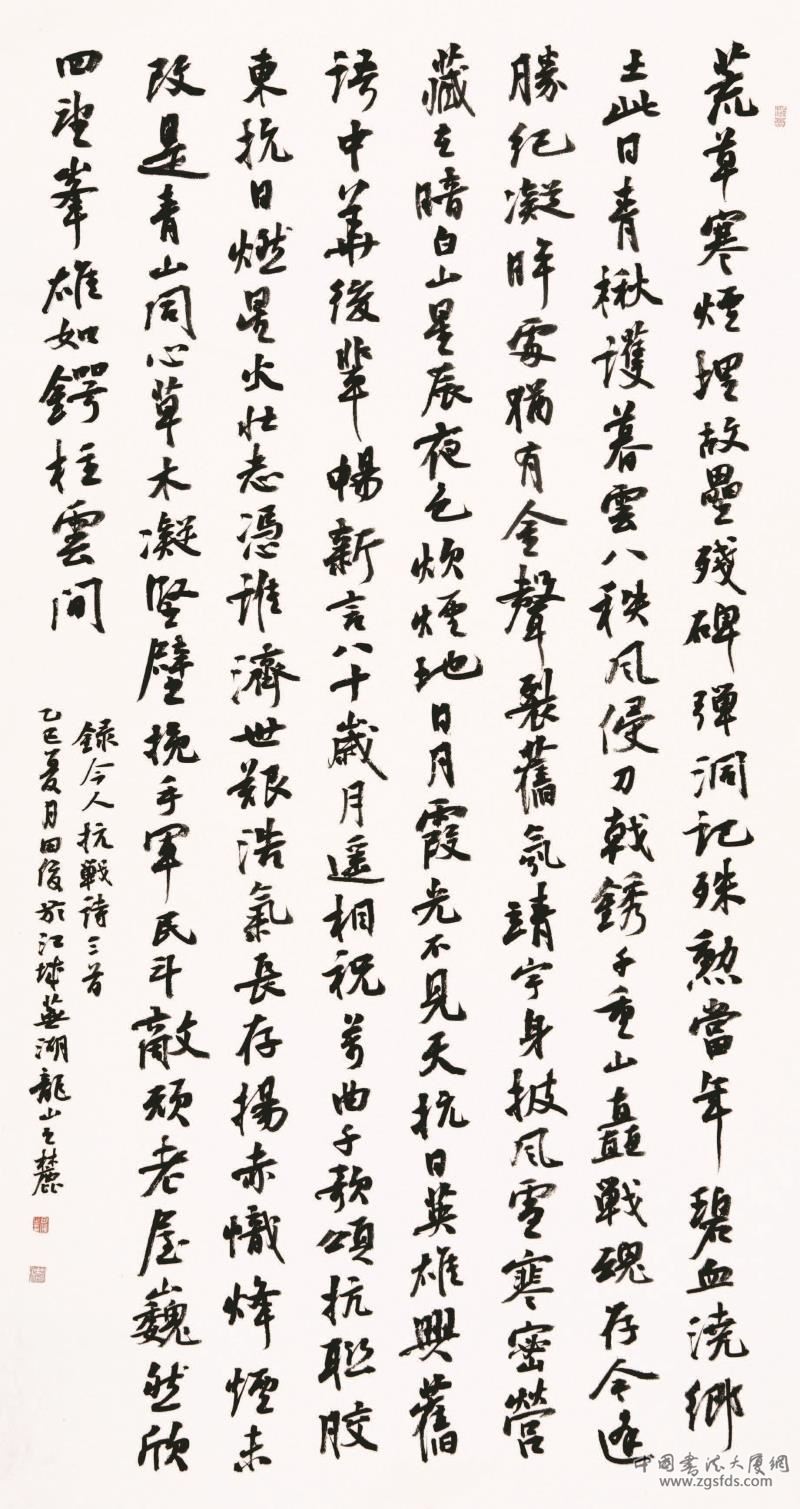 荒草寒煙埋故壘殘碑彈洞記殊勲當年碧血澆鄉
土此日青楸護暮雲八秩風侵刀戟銹千重山矗戰魂存今逢
勝紀凝眸處猶有金聲裂舊氛靖宇身披風雪寒密營
藏之暗白山星辰夜色炊煙地日月霞光不見天抗日英雄興舊
語中華後輩暢新言八十歲月遥相祝萬曲千歌頌抗聯膠
東抗日燃星火壯志憑誰濟世艱浩氣長存揚赤幟烽煙未
改是青山同心草木凝堅壁挽手軍民斗敵頑老屋巍然欣
四望峯雄如鍔柱雲間
録今人抗戰詩三首
乙巳夏月田俊於江城蕪湖龍山之麓
中國書法大廈網
www.zgsfds.com